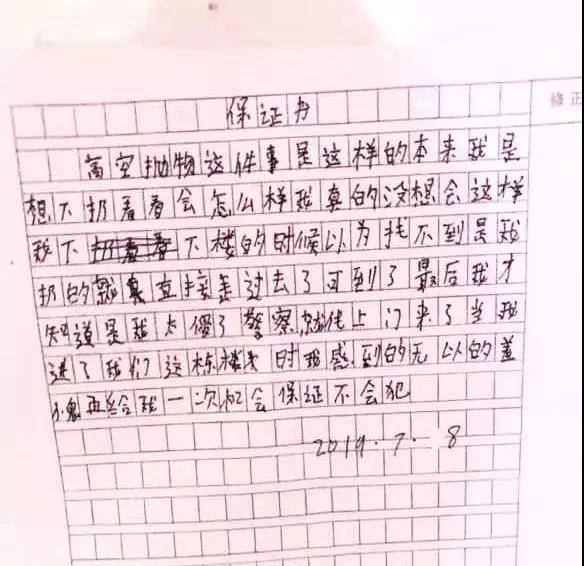 保证书
修正
高空抛物这件事是这样的本来我是
想下扔看看会怎么样我真的没想会这样
我下扔看看下楼的时候以为找不到是我
扔的就直接走过去了可到了最后我才
知道是我太傻了警察就找上门来了当我
进了我们这栋楼时我感到的无以的羞
愧再给我一次机会保证不会犯
2019.7.8